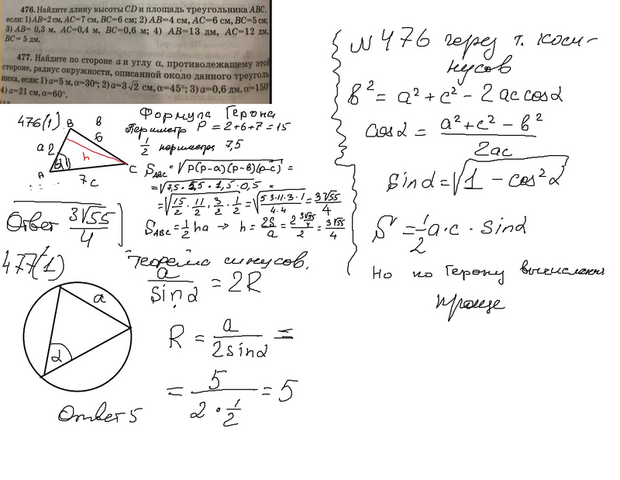 476. Найдите длину высоты CD и площадь треугольника ABC,
если: 1) AB=2 см, AC=7 см, BC=6 см; 2) AB=4 см, AC=6 см, BC=5 см;
3) AB= 0,3 м, AC=0,4 м, BC=0,6 м; 4) AB=13 дм, AC=12 дм,
BC = 5 дм.
477. Найдите по стороне a и углу α, противолежащему этой
стороне, радиус окружности, описанной около данного треуголь-
ника, если: 1) a=5 м, α=30°; 2) a=3√2 см, α=45°; 3) a=0,6 дм, α=150°
4) a=21 см, α=60°.
476(1)
B
B
6
a 2
h
A
7c
C
Формула Герона
Периметр P = 2+6+7=15
1/2 периметра 7,5
S ABC = √p(p-a)(p-b)(p-c) =
= √7,5 · 5,5 · 1,5 · 0,5 =
= √15/2 · 11/2 · 3/2 · 1/2 = √5·3·11·3·1/4·4 = 3√55/4
S ABC = 1/2 ha → h = 2S/a = 2 3√55/4 / 2 = 3√55/4
Ответ 3√55/4
477(1)
a
α
Ответ 5
Теорема синусов.
a/sin α = 2R
R = a/2sin α =
= 5/2·1/2 = 5
N 476 через т. коси-
нусов
b² = a² + c² - 2ac cos α
cos α = a² + c² - b²/2ac
sin α = √1 - cos² α
S = 1/2 a·c · sin α
Но по Герону вычисления
проще